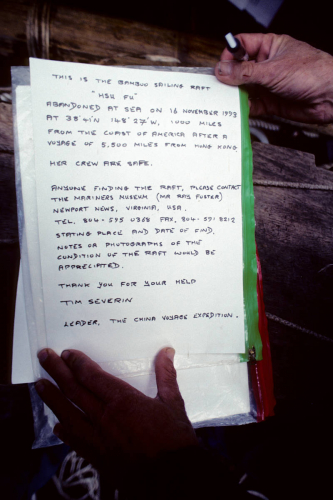 THIS IS THE BAMBOO SAILING RAFT
"HSU FU"
ABANDONED AT SEA ON 16 NOVEMBER 1993
AT 38°41'N 148°27'W, 1000 MILES
FROM THE COAST OF AMERICA AFTER A
VOYAGE OF 5,500 MILES FROM HONG KONG
HER CREW ARE SAFE.
ANYONE FINDING THE RAFT, PLEASE CONTACT
THE MARINERS MUSEUM (MR RAS FOSTER)
NEWPORT NEWS, VIRGINIA, USA.
TEL. 804-595 0368 FAX, 804-591 8212
STATING PLACE AND DATE OF FIND.
NOTES OR PHOTOGRAPHS OF THE
CONDITION OF THE RAFT WOULD BE
APPRECIATED.
THANK YOU FOR YOUR HELP
TIM SEVERIN
LEADER, THE CHINA VOYAGE EXPEDITION.